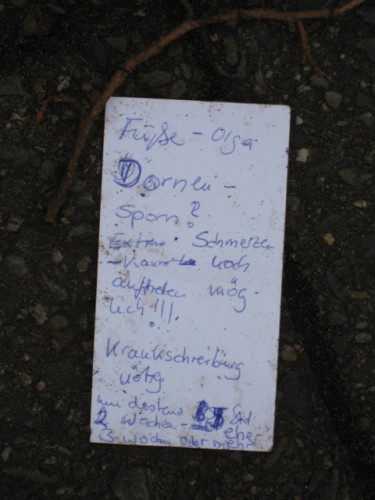 Füße - Olga
Dornen -
sporn?
Extrem Schmerzen
- kaum noch
auftreten mög-
lich!!!
Krankschreibung
nötig
mindestens
2 Wochen - eher
3 Wochen oder mehr